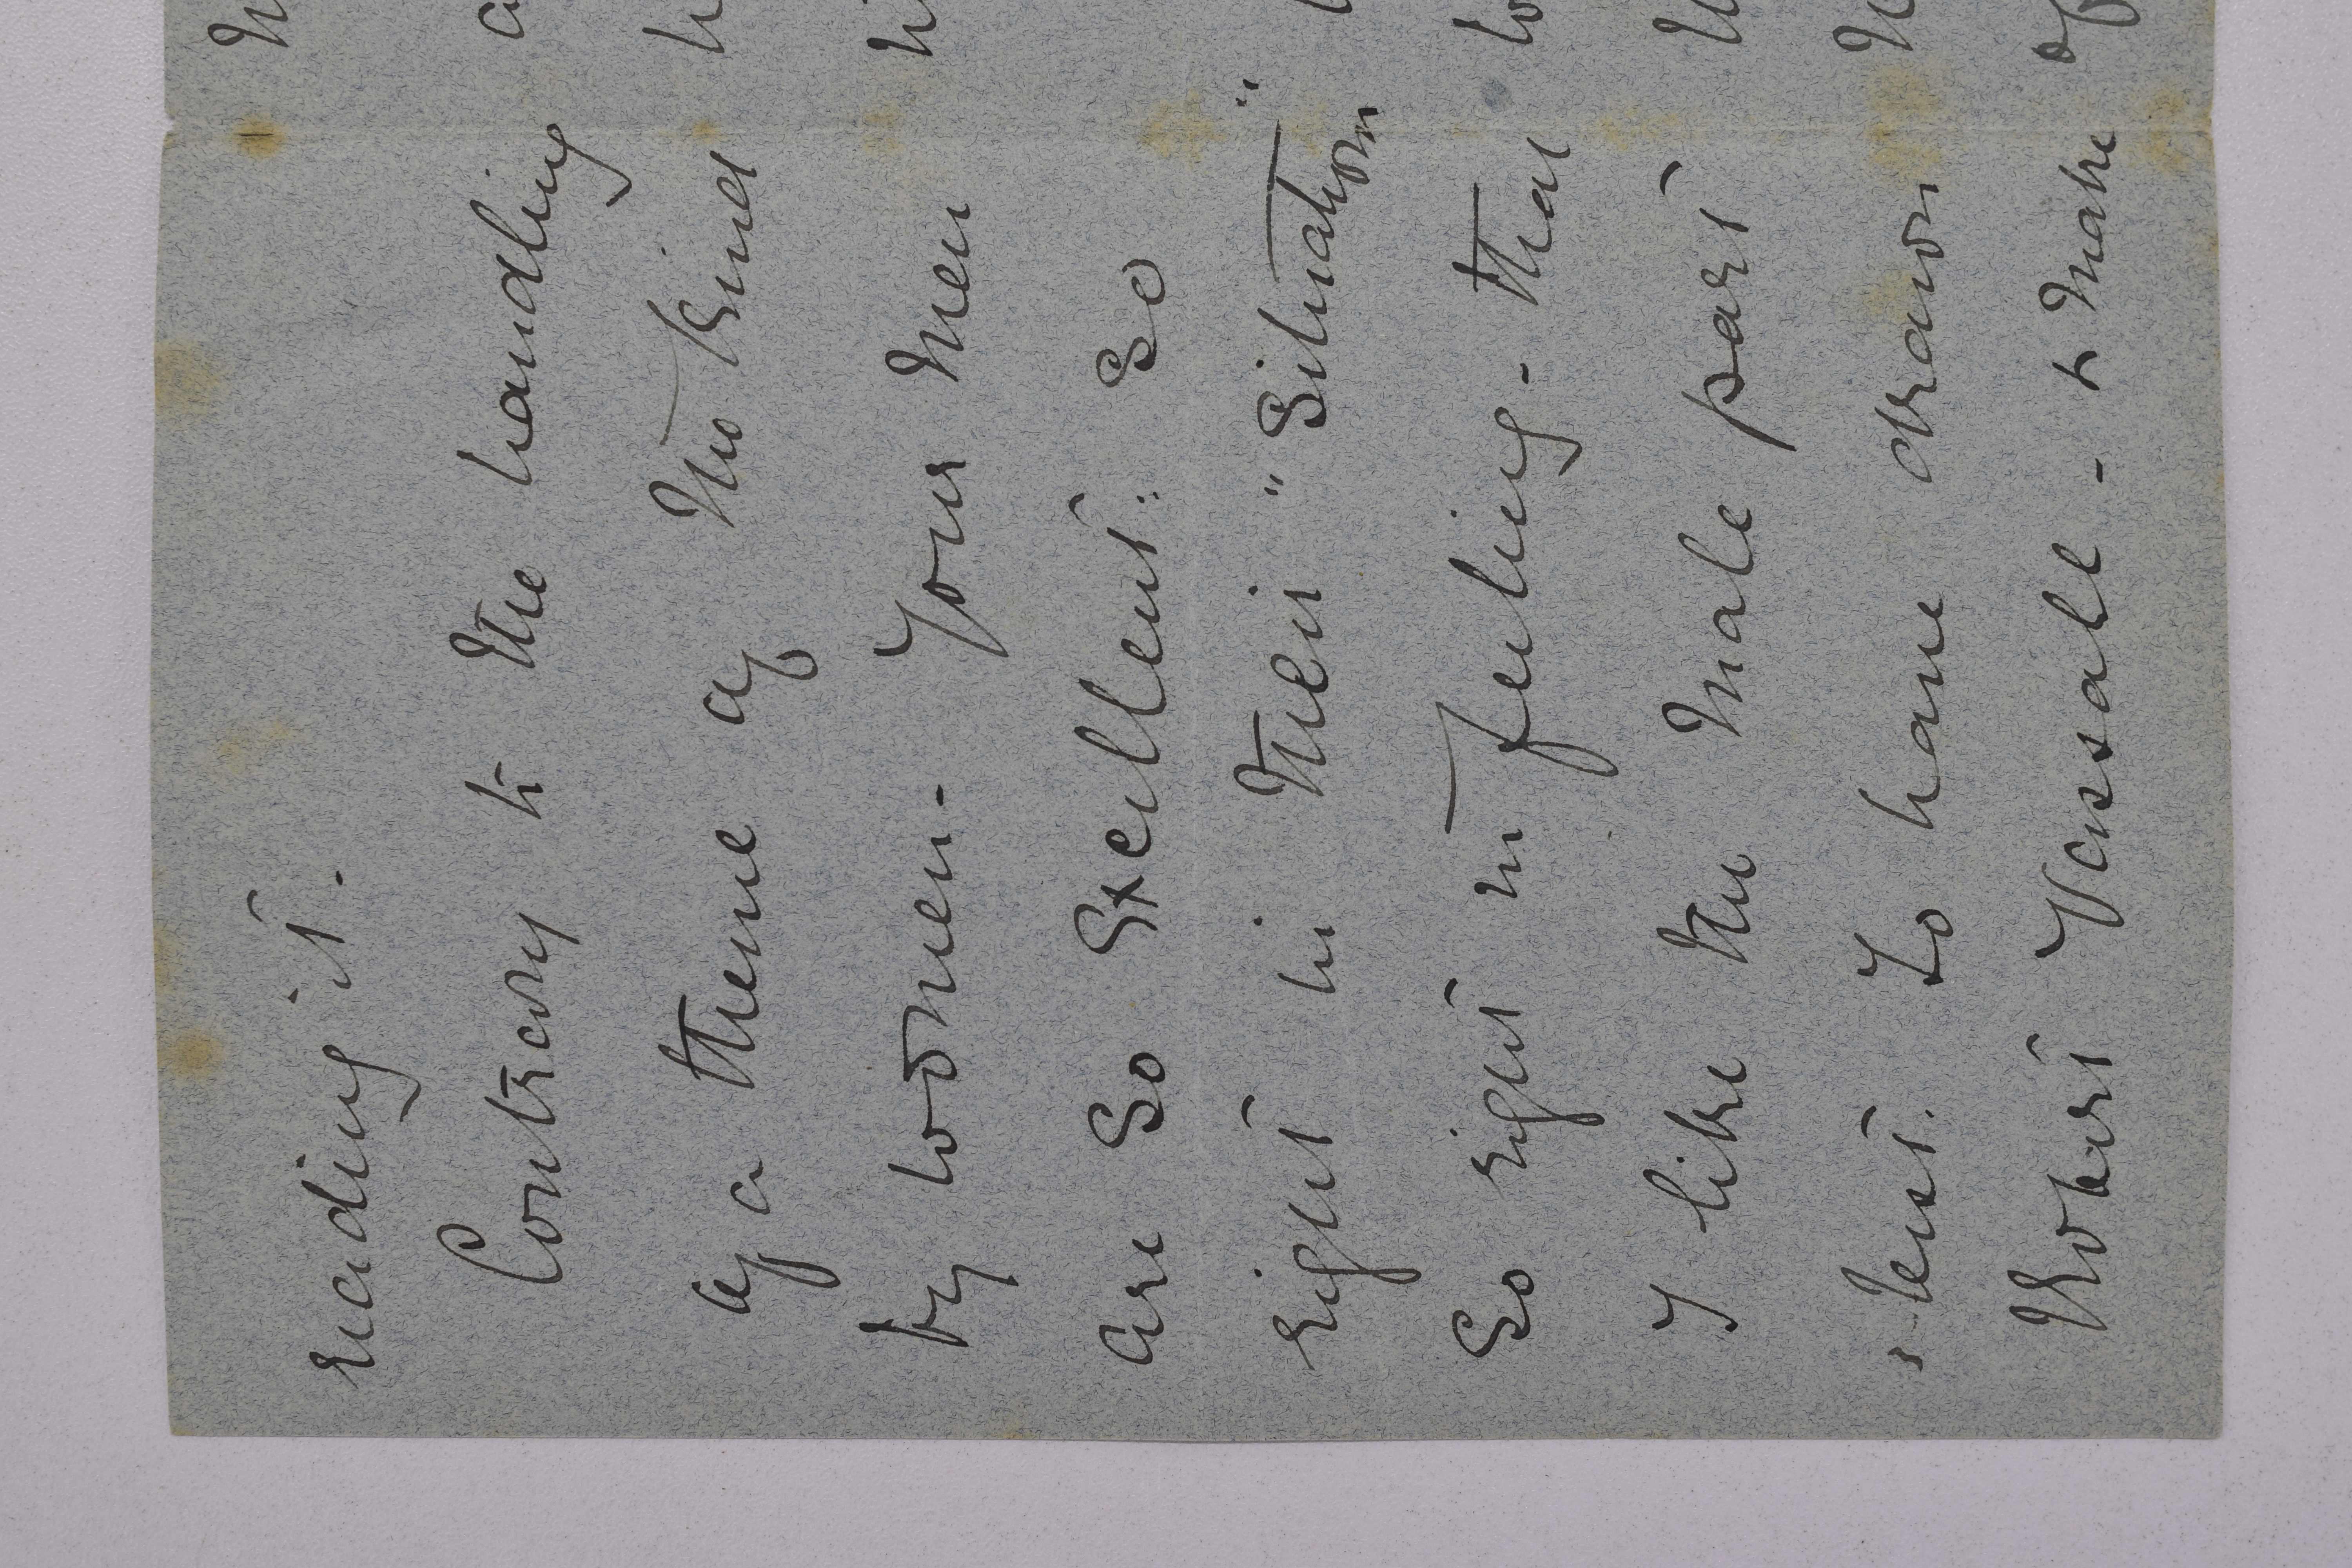 reading it.
Contrary to the handling
of a theme of this kind
by women - your men
are so excellent: so
right in their "situation"
so right in feeling - that
I like the male part
best. To have drawn
Robert Vassall - to make
of